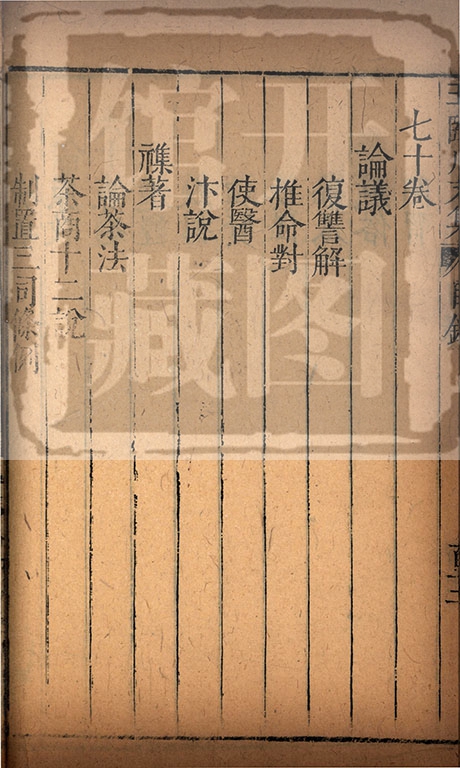 七十卷
論議
復讐解
推命對
使醫
汴說
襍著
論茶法
茶商十二說
制置三司條例